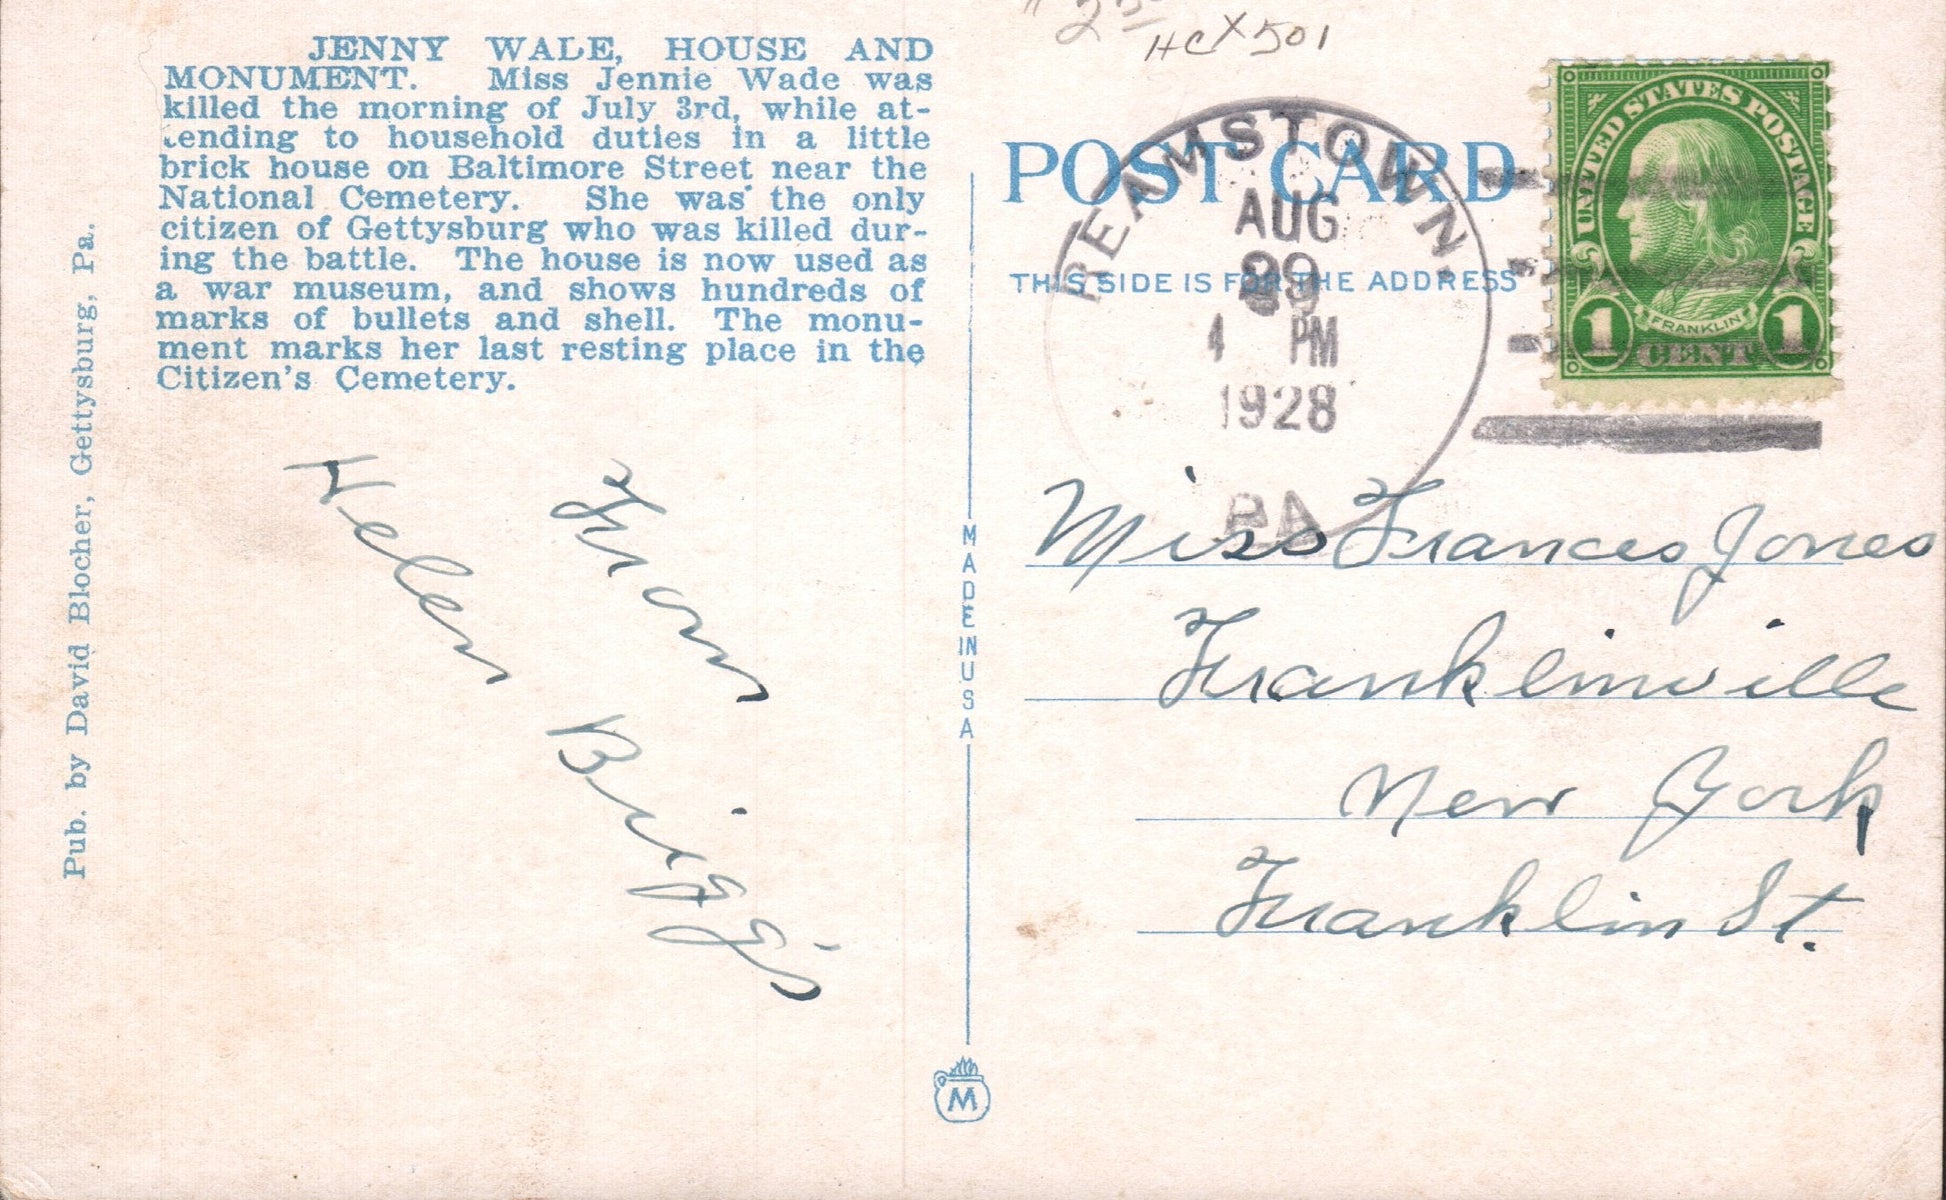 " 2 50
HCX501
JENNY WALE, HOUSE AND
MONUMENT. Miss Jennie Wade was
killed the morning of July 3rd, while at-
tending to household duties in a little
brick house on Baltimore Street near the
National Cemetery. She was the only
citizen of Gettysburg who was killed dur-
ing the battle. The house is now used as
a war museum, and shows hundreds of
marks of bullets and shell. The monu-
ment marks her last resting place in the
Citizen's Cemetery.
Pub. by David Blocher, Gettysburg, Pa.
From
Helen Briggs
MADE IN USA
M
POST CARD
THIS SIDE IS FOR THE ADDRESS
REAMSTOWN.
AUG
29
4 PM
1928
PA
UNITED STATES POSTAGE
FRANKLIN
1 CENT 1
Miss Frances Jones
Franklinville
New York
Franklin St.